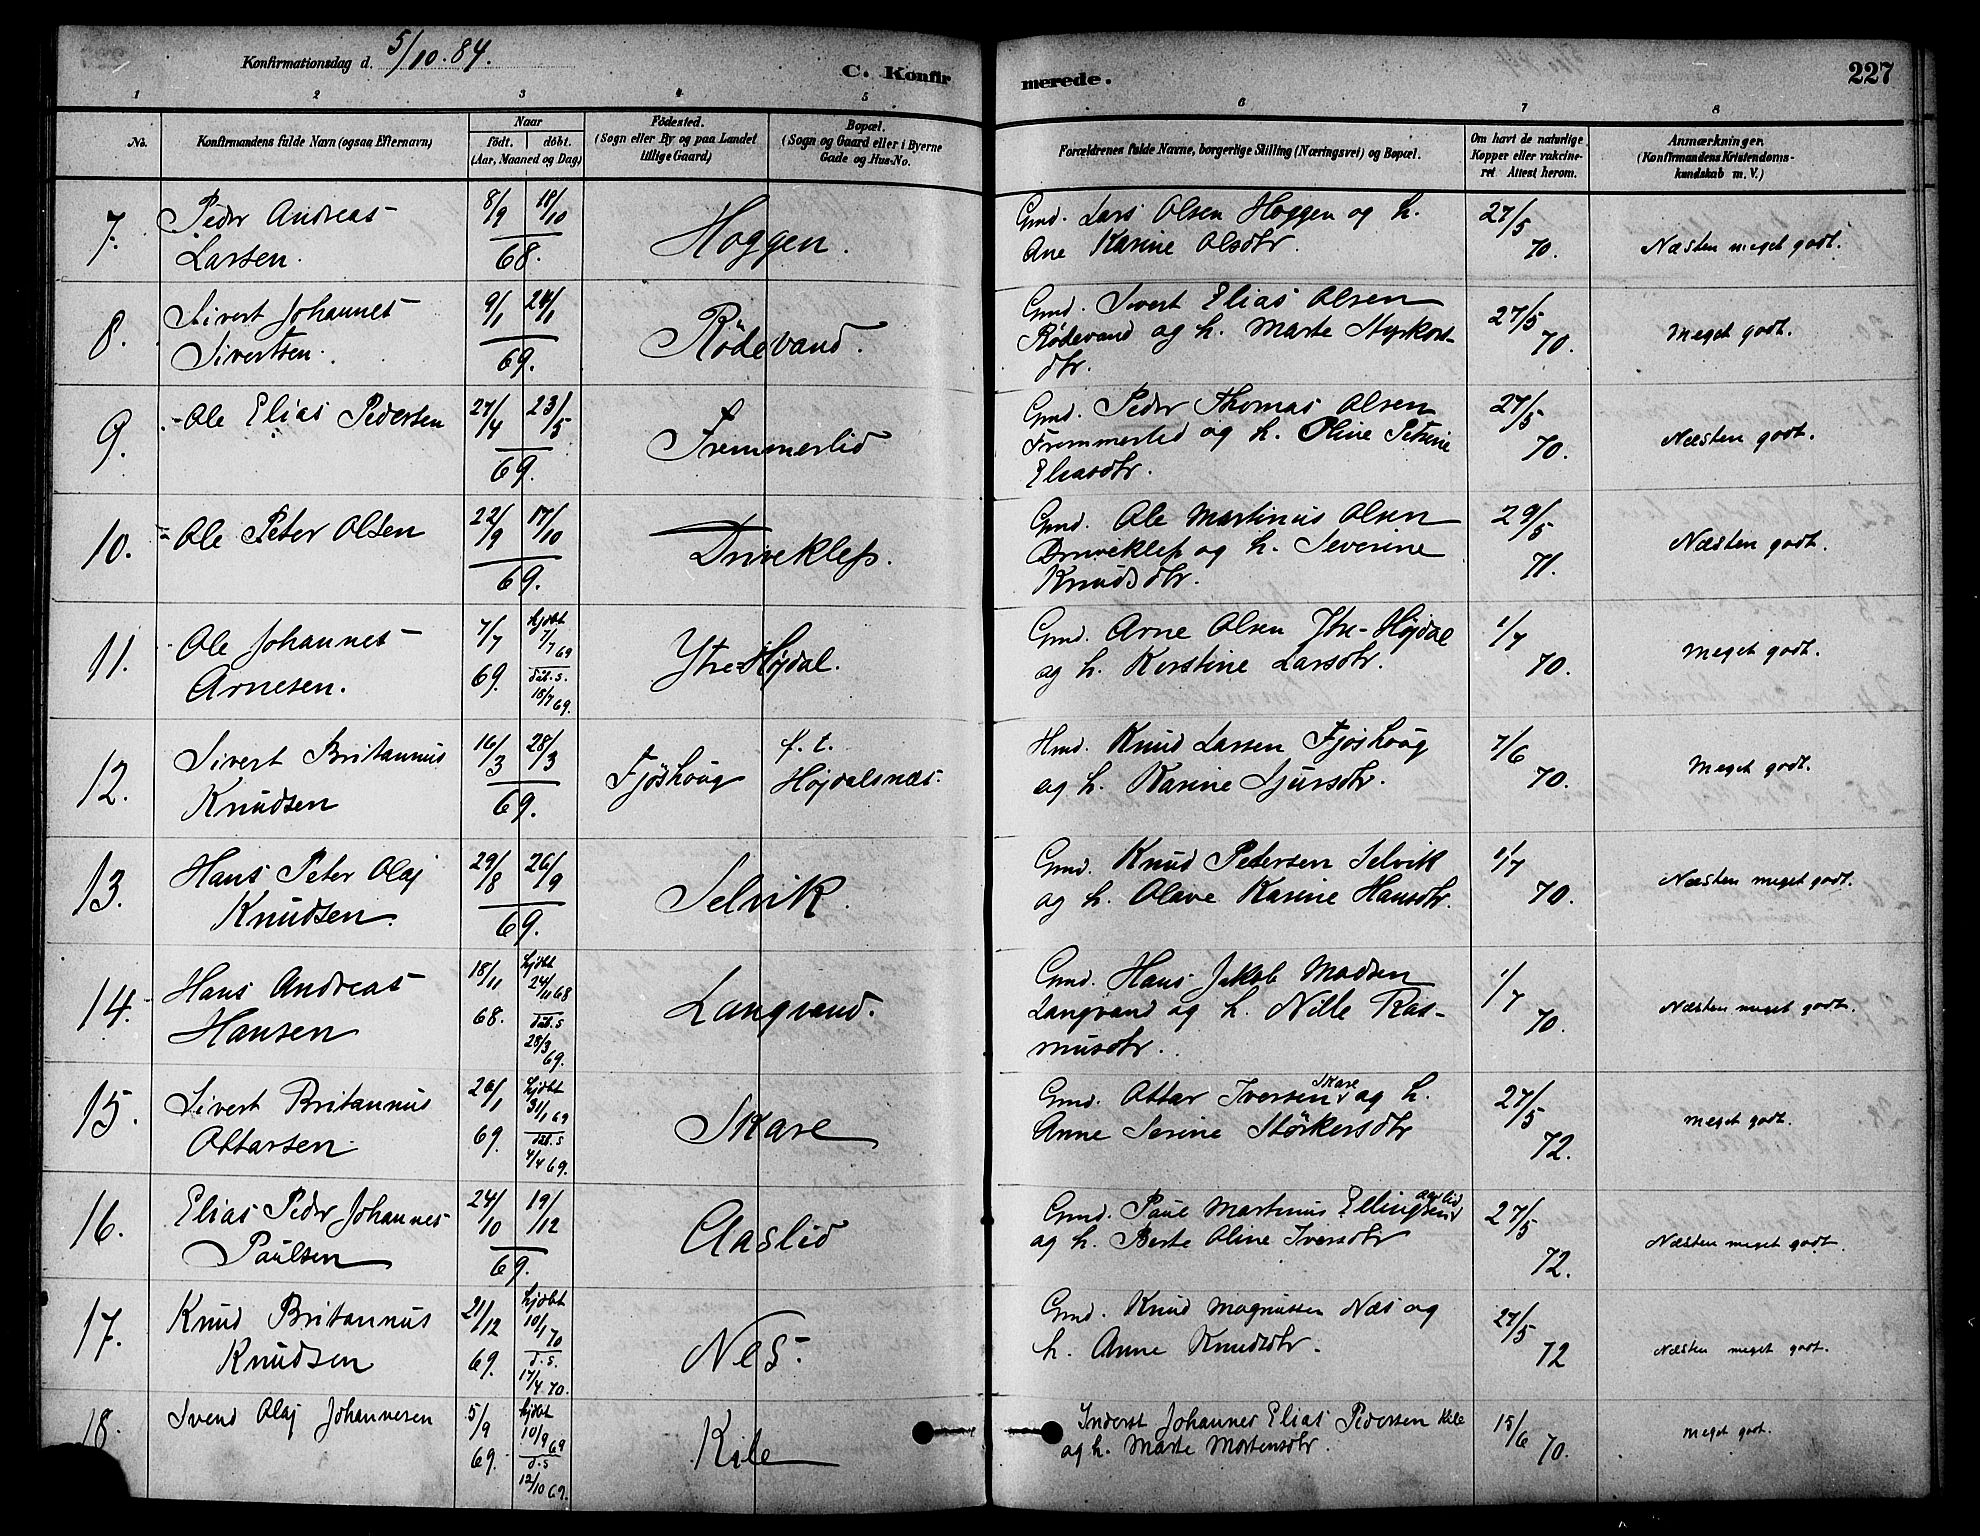 Konfirmationsdag d. 5/10.84.
C. Konfirmerede.
227
1 2 3 4 5 6 7 8
No.
Konfirmandens fulde Navn (ogsaa Efternavn)
Naar
født. døbt.
(Aar, Maaned og Dag)
Fødested.
(Sogn eller By og paa Landet
tillige Gaard)
Bopæl.
(Sogn og Gaard eller i Byerne
Gade og Hus-No.
Forældrenes fulde Navne, borgerlige Stilling (Næringsvei) og Bopæl.
Om havt de naturlige
Kopper eller vakcine-
ret Attest herom.
Anmærkninger.
(Konfirmandens Kristendoms-
kundskab m. V.)
7. Peder Andreas
Larsen.
8/9 18/10
68.
Hoggen.
Gmd. Lars Olsen Hoggen og h.
Ane Karine Olsdtr.
27/5
70.
Næsten meget godt.
8. Sivert Johannes
Sivertsen.
9/1 24/1
69.
Rödevand.
Gmd. Sivert Elias Olsen
Rödevand og h. Marte Styrkors-
dtr.
27/5
70.
Meget godt.
9. Ole Elias Pedersen
27/4 23/5
69.
Fremmerlid
Gmd. Peder Thomas Olsen
Fremmerlid og h. Oline Petrine
Eliasdtr.
27/5
70.
Næsten godt.
10. Ole Peter Olsen
22/9 17/10
69.
Driveklep.
Gmd. Ole Martinus Olsen
Driveklep og h. Severine
Knudsdtr.
29/5
71.
Næsten godt.
11. Ole Johannes
Arnesen.
7/7
69.
hjdbt
7/7 69
dåb.s.
18/7 69.
Ytre-Højdal.
Gmd. Arne Olsen Ytre-Højdal
og h. Kerstine Larsdtr.
1/7
70.
Meget godt.
12. Sivert Britannus
Knudsen
16/3 28/3
69.
Fjøshoug
f. t.
Højdalsnæs.
Hmd. Knud Larsen Fjøshoug
og h. Karine Sjursdtr.
7/6
70.
Meget godt.
13. Hans Peter Olaj
Knudsen.
29/8 26/9
69.
Selvik.
Gmd. Knud Petersen Selvik
og h. Olave Karine Hansdtr.
1/7
70.
Næsten meget godt.
14. Hans Andreas
Hansen
18/11
68.
hjdbt
24/11 68
dåb.s
28/3 69.
Langvand.
Gmd. Hans Jakob Madsen
Langvand og h. Nille Ras-
musdtr.
1/7
70.
Næsten meget godt.
15. Sivert Britannus
Ottarsen
26/1
69.
hjdbt
31/1 69
dåb.s
4/4 69.
Skare
Gmd. Ottar Iversen Skare og h.
Anne Serine Störkersdtr
27/5
72.
meget godt.
16. Elias Peder Johannes
Paulsen
24/10 19/12
69.
Aaslid
Gmd. Paul Martinus Ellingsen Aaslid
og h. Berte Oline Iversdtr
27/5
72.
Næsten meget godt.
17. Knud Britannus
Knudsen
21/12
69.
hjdbt
10/1 70
d.s.
17/4 70.
Nes.
Gmd. Knud Magnussen Næs og
h. Anne Knudsdtr.
27/5
72
Næsten meget godt.
18. Svend Olaj Johannesen
5/9
69.
hjdbt
10/9 69
d.s
12/10 69.
Kile
Inderst Johannes Elias Pedersen Kile
og h. Marte Mortensdtr.
15/6
70.
meget godt.